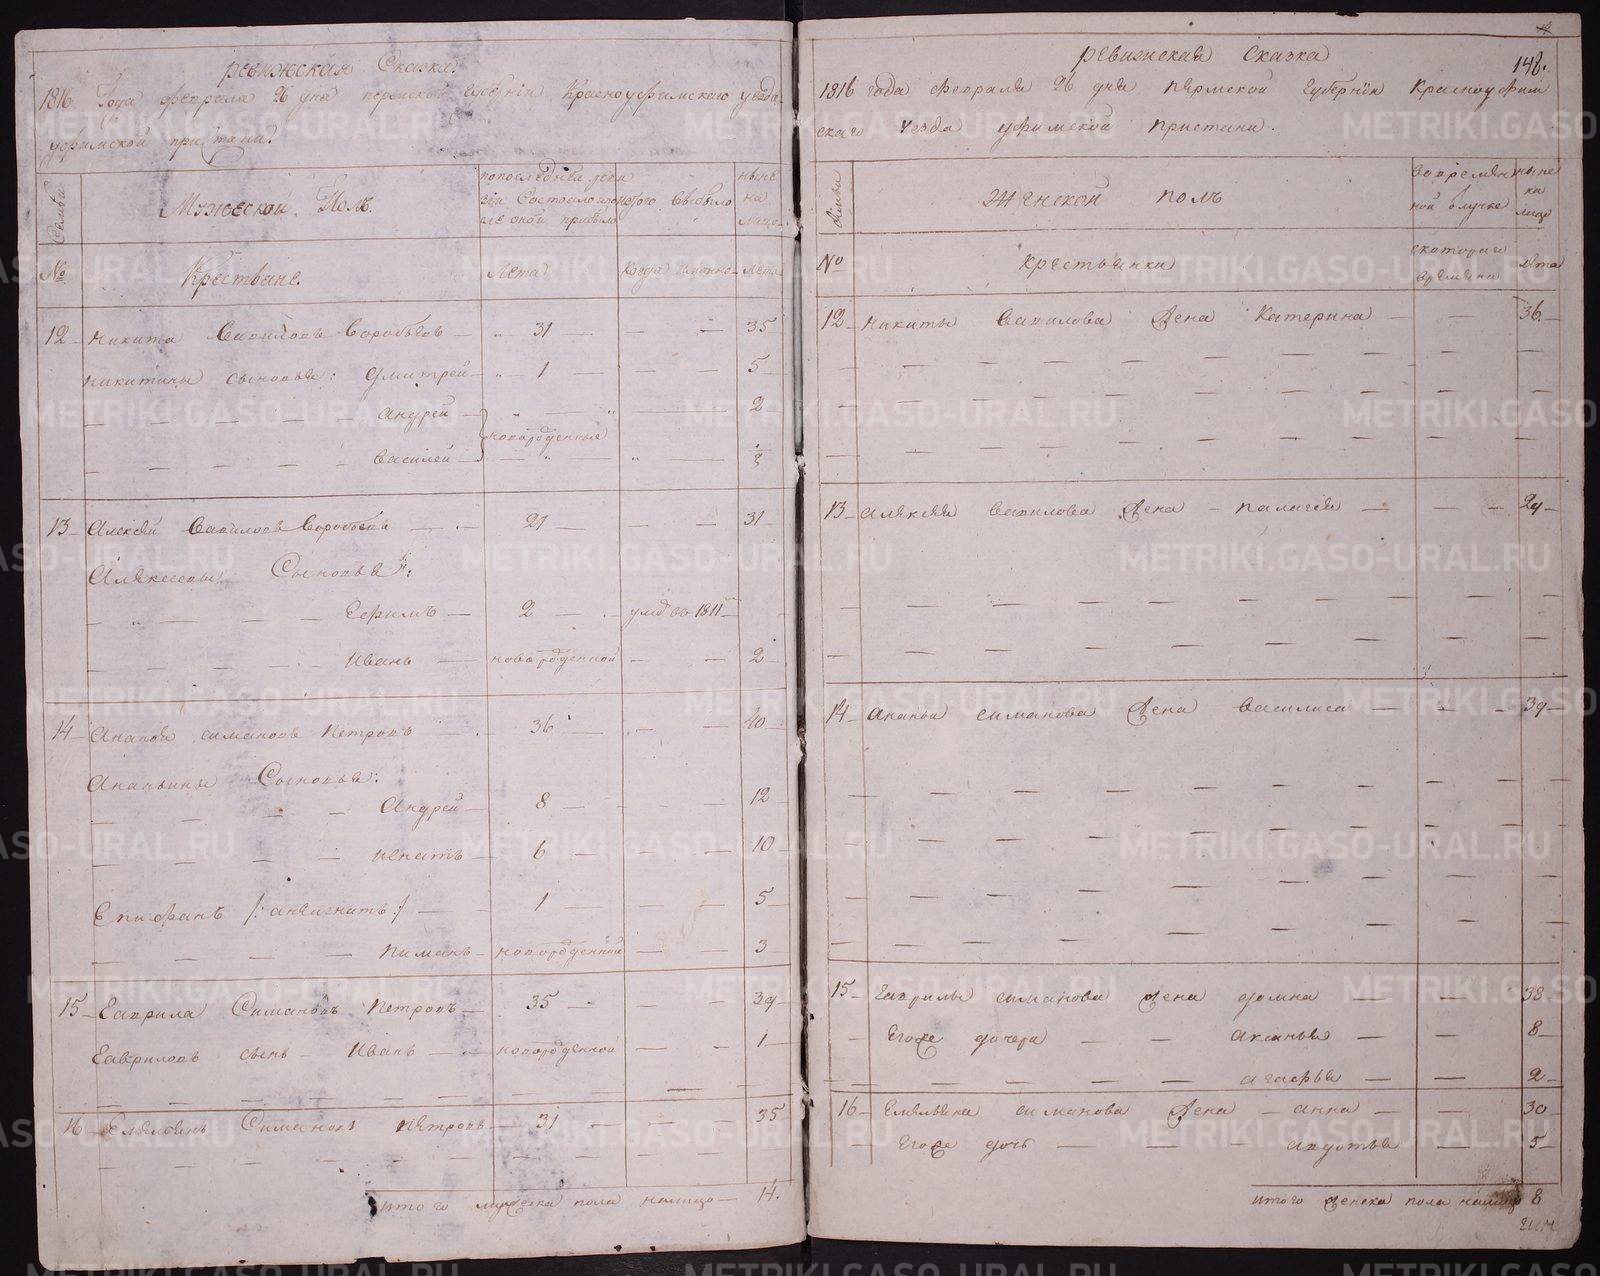 ревижская Сказка.
1816 Года февраля 26 дня пермской Губернiи Красноуфимскаго уезда
уфимской пристани.
Семьи
Мужеской Полъ.
по последней реви
зiи Состояло и по
сле оной прибыло
изтого Сбыло
ныне
на
лицо
№
Крестьяне.
Лета
когда имянно
Лета
12 Никита Вавиловъ Воробьевъ — 31 — — 35
никитины сыновья: Дмитрей — 1 — — 5
андрей — — 2
новорожденныя
василей — —
13 Алексей Вавиловъ Воробьевъ — 27 — — 31
Алексеевы Сыновья:
Ефимъ — 2 — умре въ 1811
Иванъ — новорожденной — — 2
14 Ананья симановъ Петровъ — 36 — — 40
Ананьины Сыновья:
Андрей — 8 — — 12
Игнатъ — 6 — — 10
Епифанъ /: онже игнатъ :/ — 1 — — 5
Пиманъ — новорожденной — — 3
15 Гаврила Симановъ Петровъ — 35 — — 39
Гавриловъ сынъ — Иванъ — новорожденной — — 1
16 Емельянъ Симановъ Петровъ — 31 — — 35
итого мужеска пола налицо — 14.
ревижская сказка
148.
1816 года февраля 26 дня пермской Губернiи Красноуфим
скаго уезда уфимской пристани.
Семьи
Женской полъ
Вовремян
ной отлучке
ныне
на
лице
№
крестьянки
скотораго
времяни
лета
12 никиты Вавилова Жена Катерина — — 36
13 алексея Вавилова Жена — палагея — — 29
14 ананьи симанова Жена Василиса — — 39
15 Гаврилы симанова Жена домна — — 38
Егоже дочери — — аксинья — — 8
агафья — — 2
16 Емельяна симанова Жена — анна — — 30
Егоже дочь — — авдотья — 5
итого женска пола налицо 8